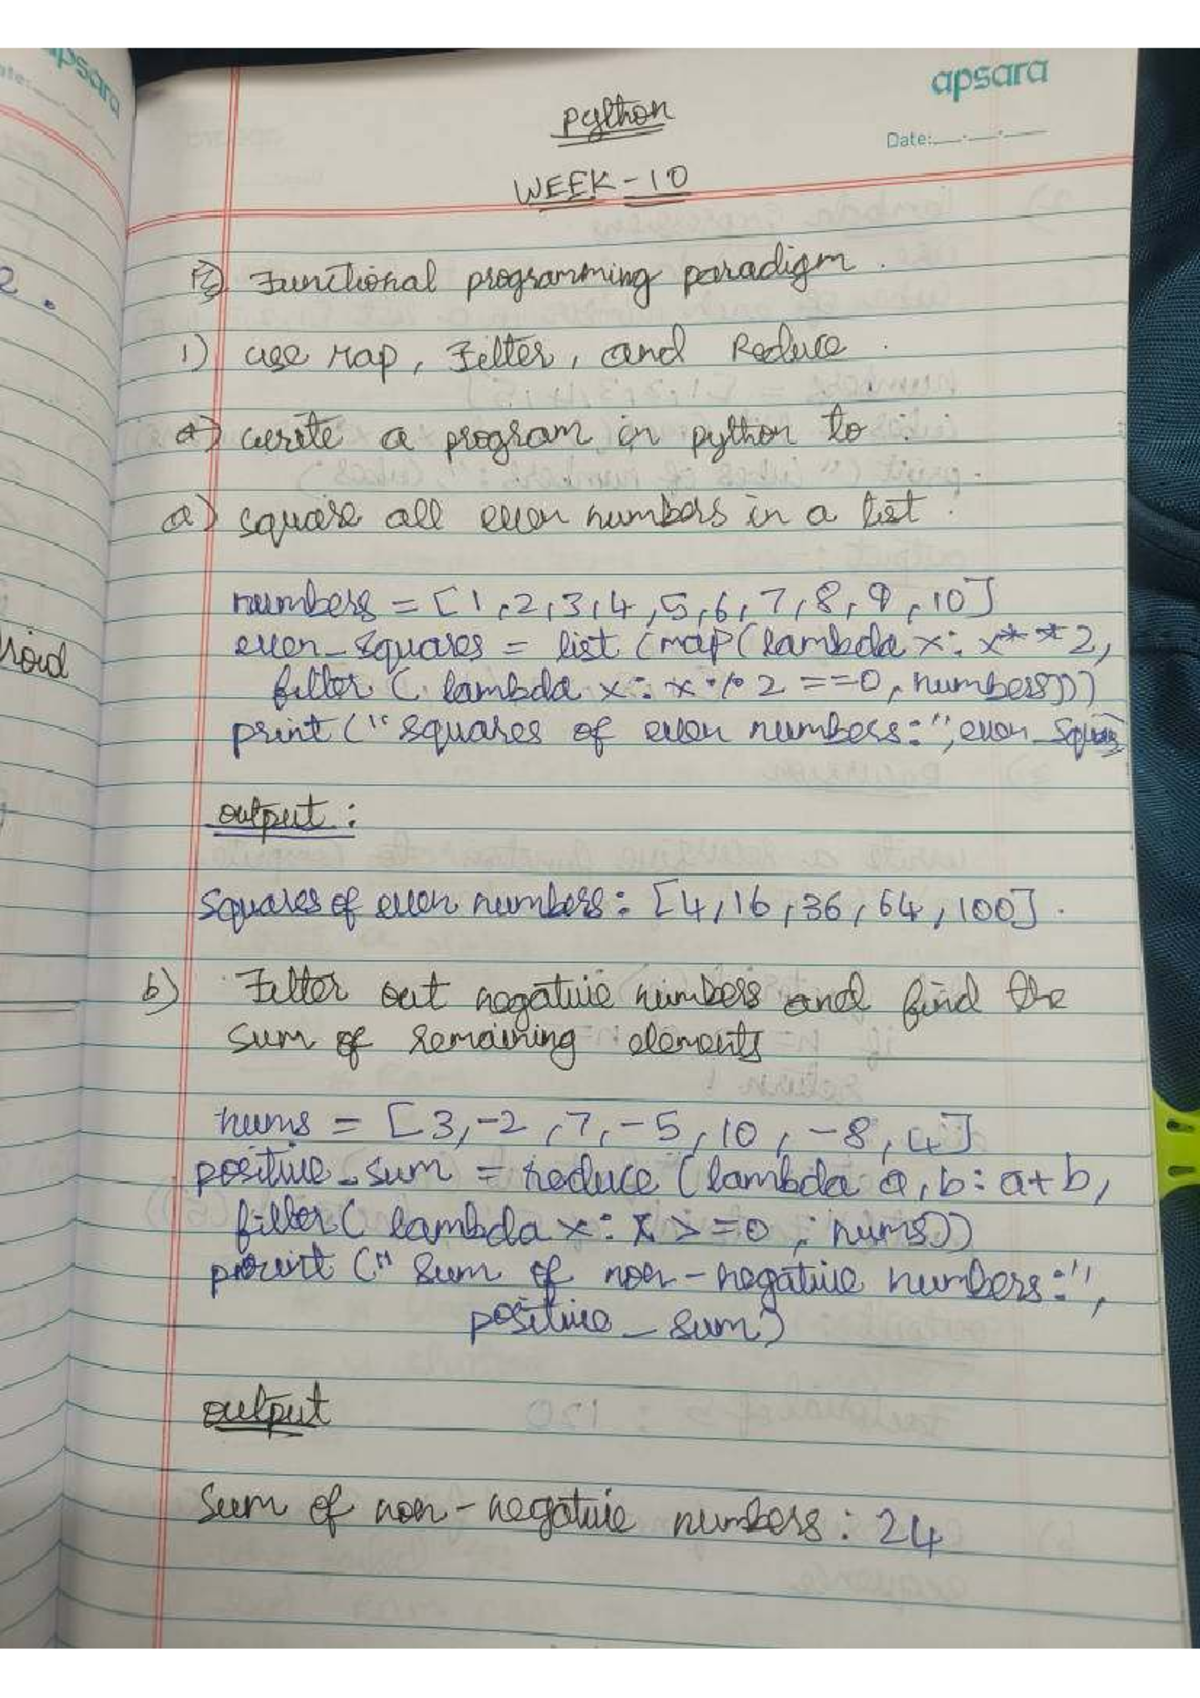 apsara
Date:
Python
WEEK-10
Functional programming paradigm.
1) use Map, Filter, and Reduce.
write a program in python to:
a) square all even numbers in a list.
numbers = [1,2,3,4,5,6,7,8,9,10]
even_squares = list (map(lambda x: x**2,
filter (lambda x: x % 2 ==0, numbers)))
print ("squares of even numbers:", even_squares
output:
squares of even numbers: [4,16,36,64,100].
b) Filter out negative numbers and find the
sum of remaining elements
nums = [3,-2,7,-5,10,-8,4]
positive_sum = reduce (lambda a,b: a+b,
filter( lambda x: x >=0 , nums))
print (" Sum of non-negative numbers:",
positive_sum)
output
Sum of non-negative numbers: 24